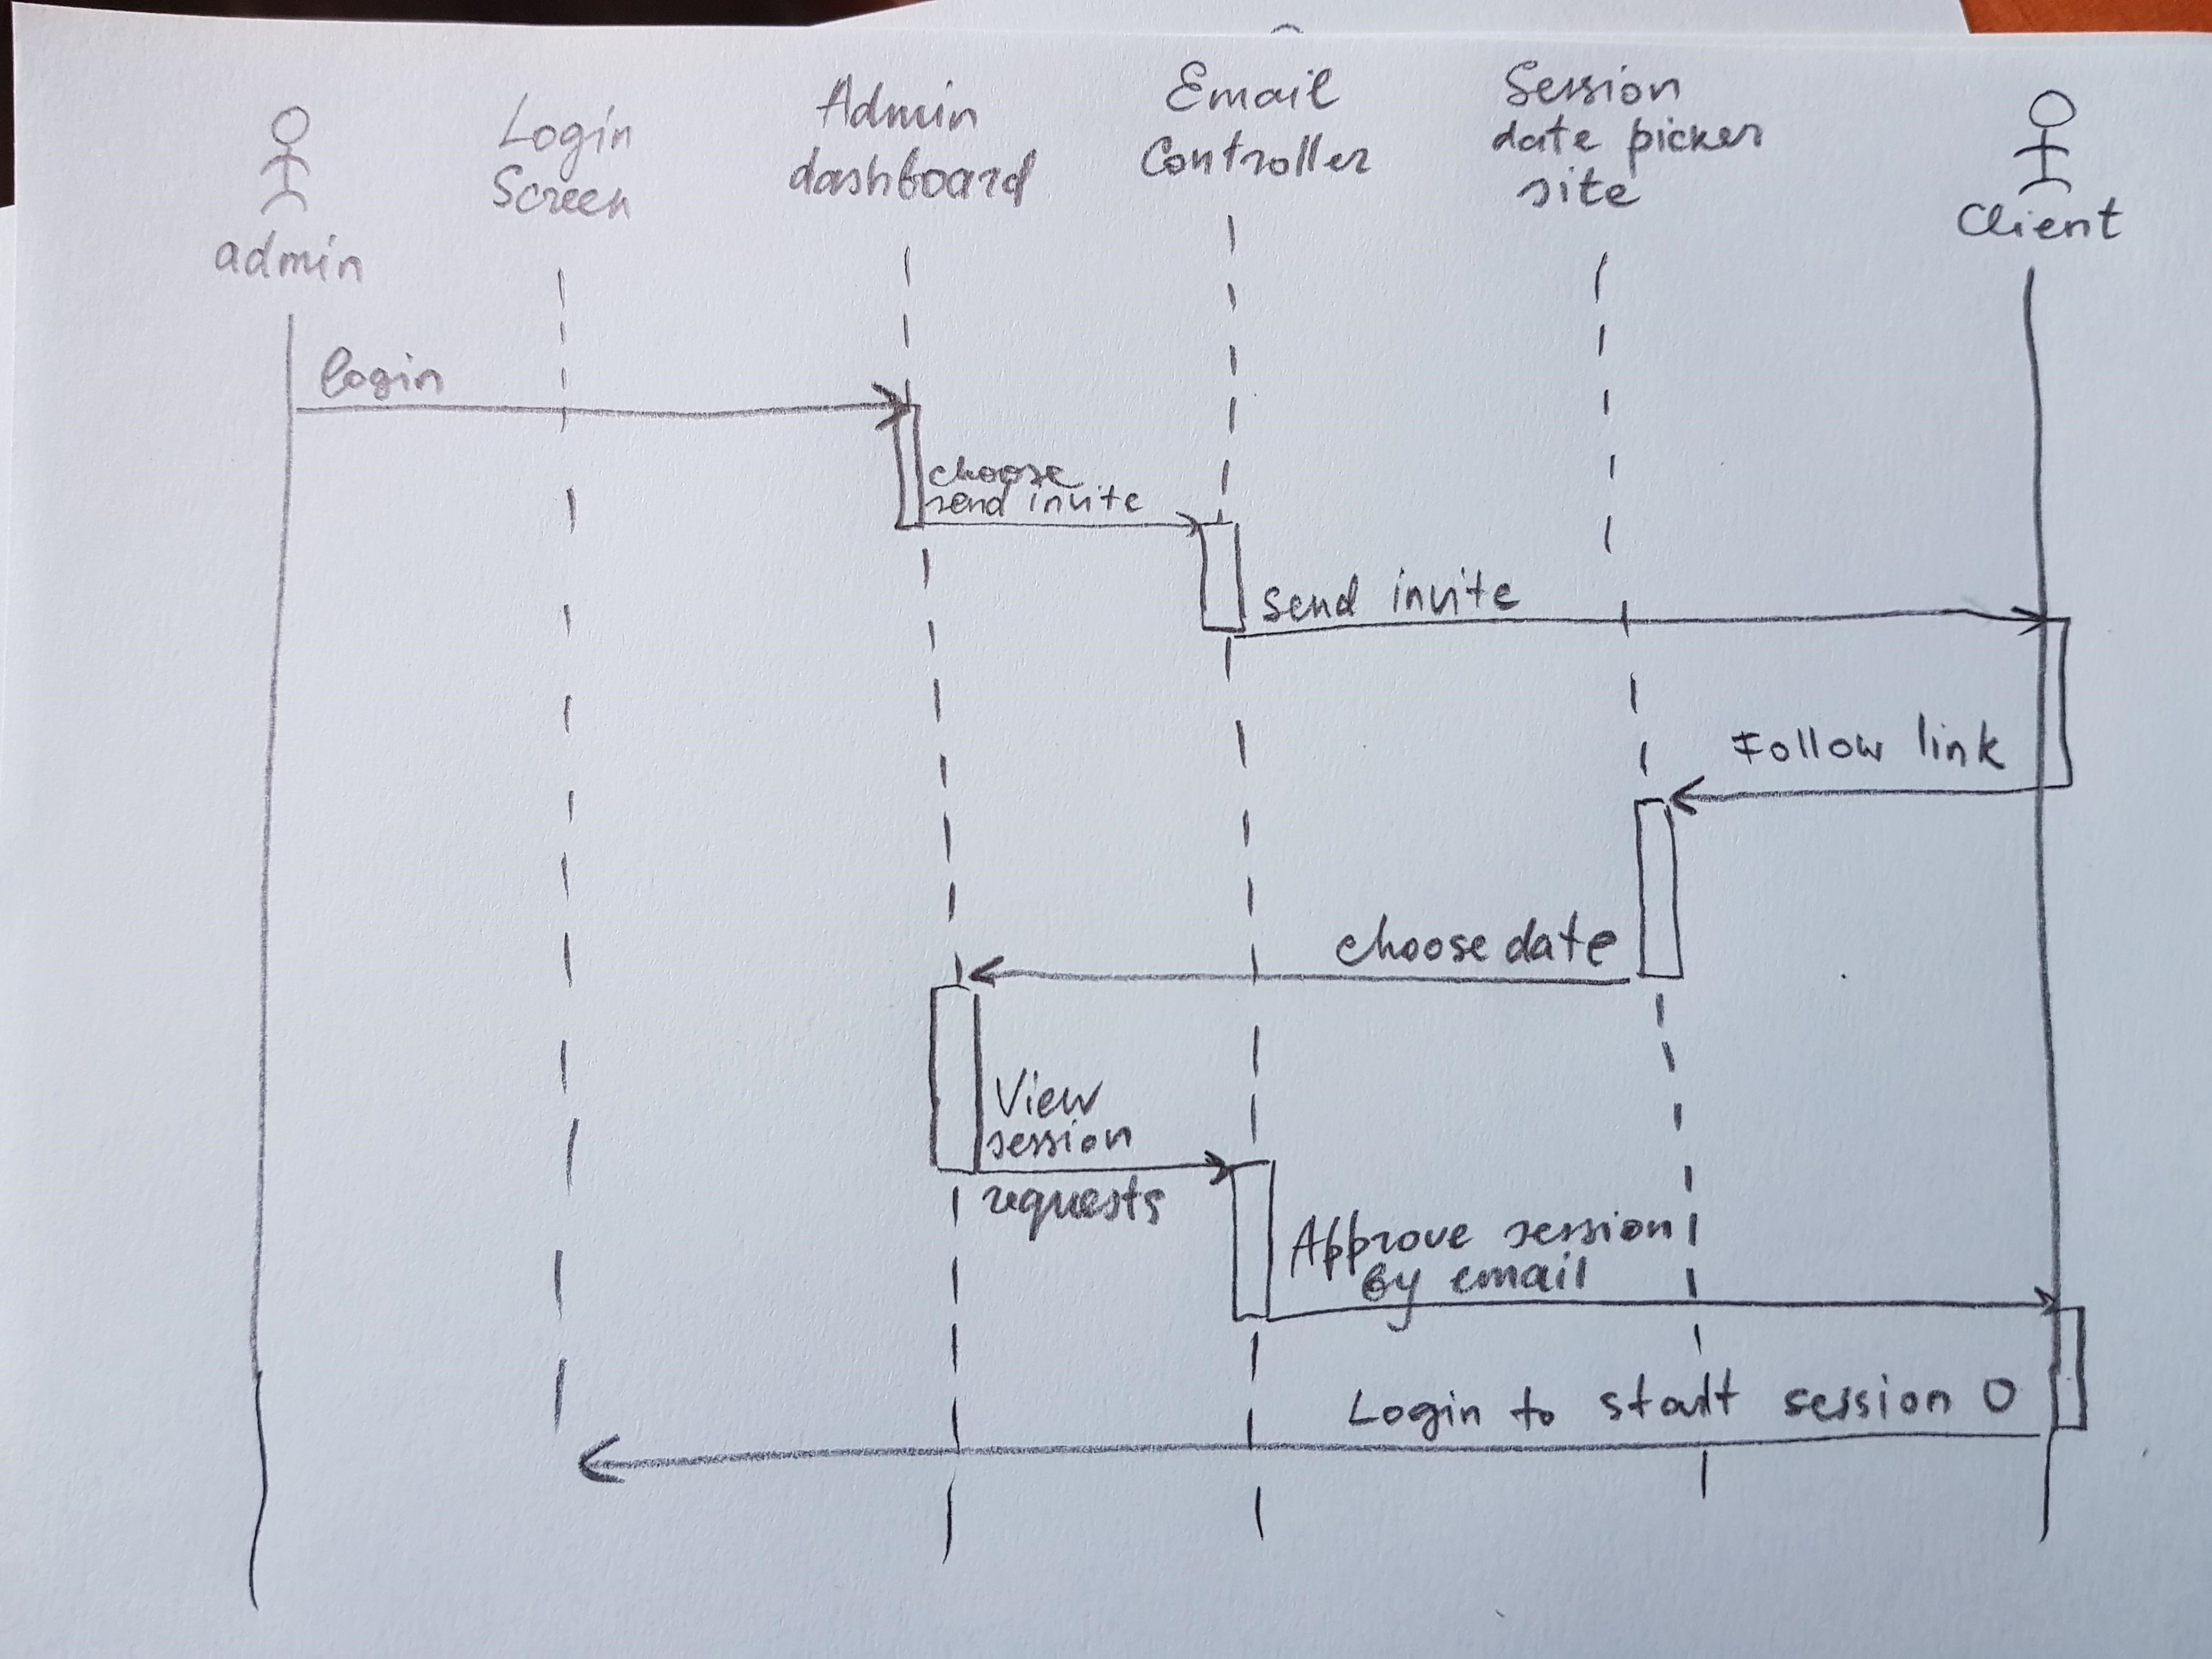 admin
Login
Screen
Admin
dashboard
Email
Controller
Session
date picker
site
Client
login
choose
send invite
send invite
Follow link
choose date
View
session
requests
Approve session
by email
Login to start session 0